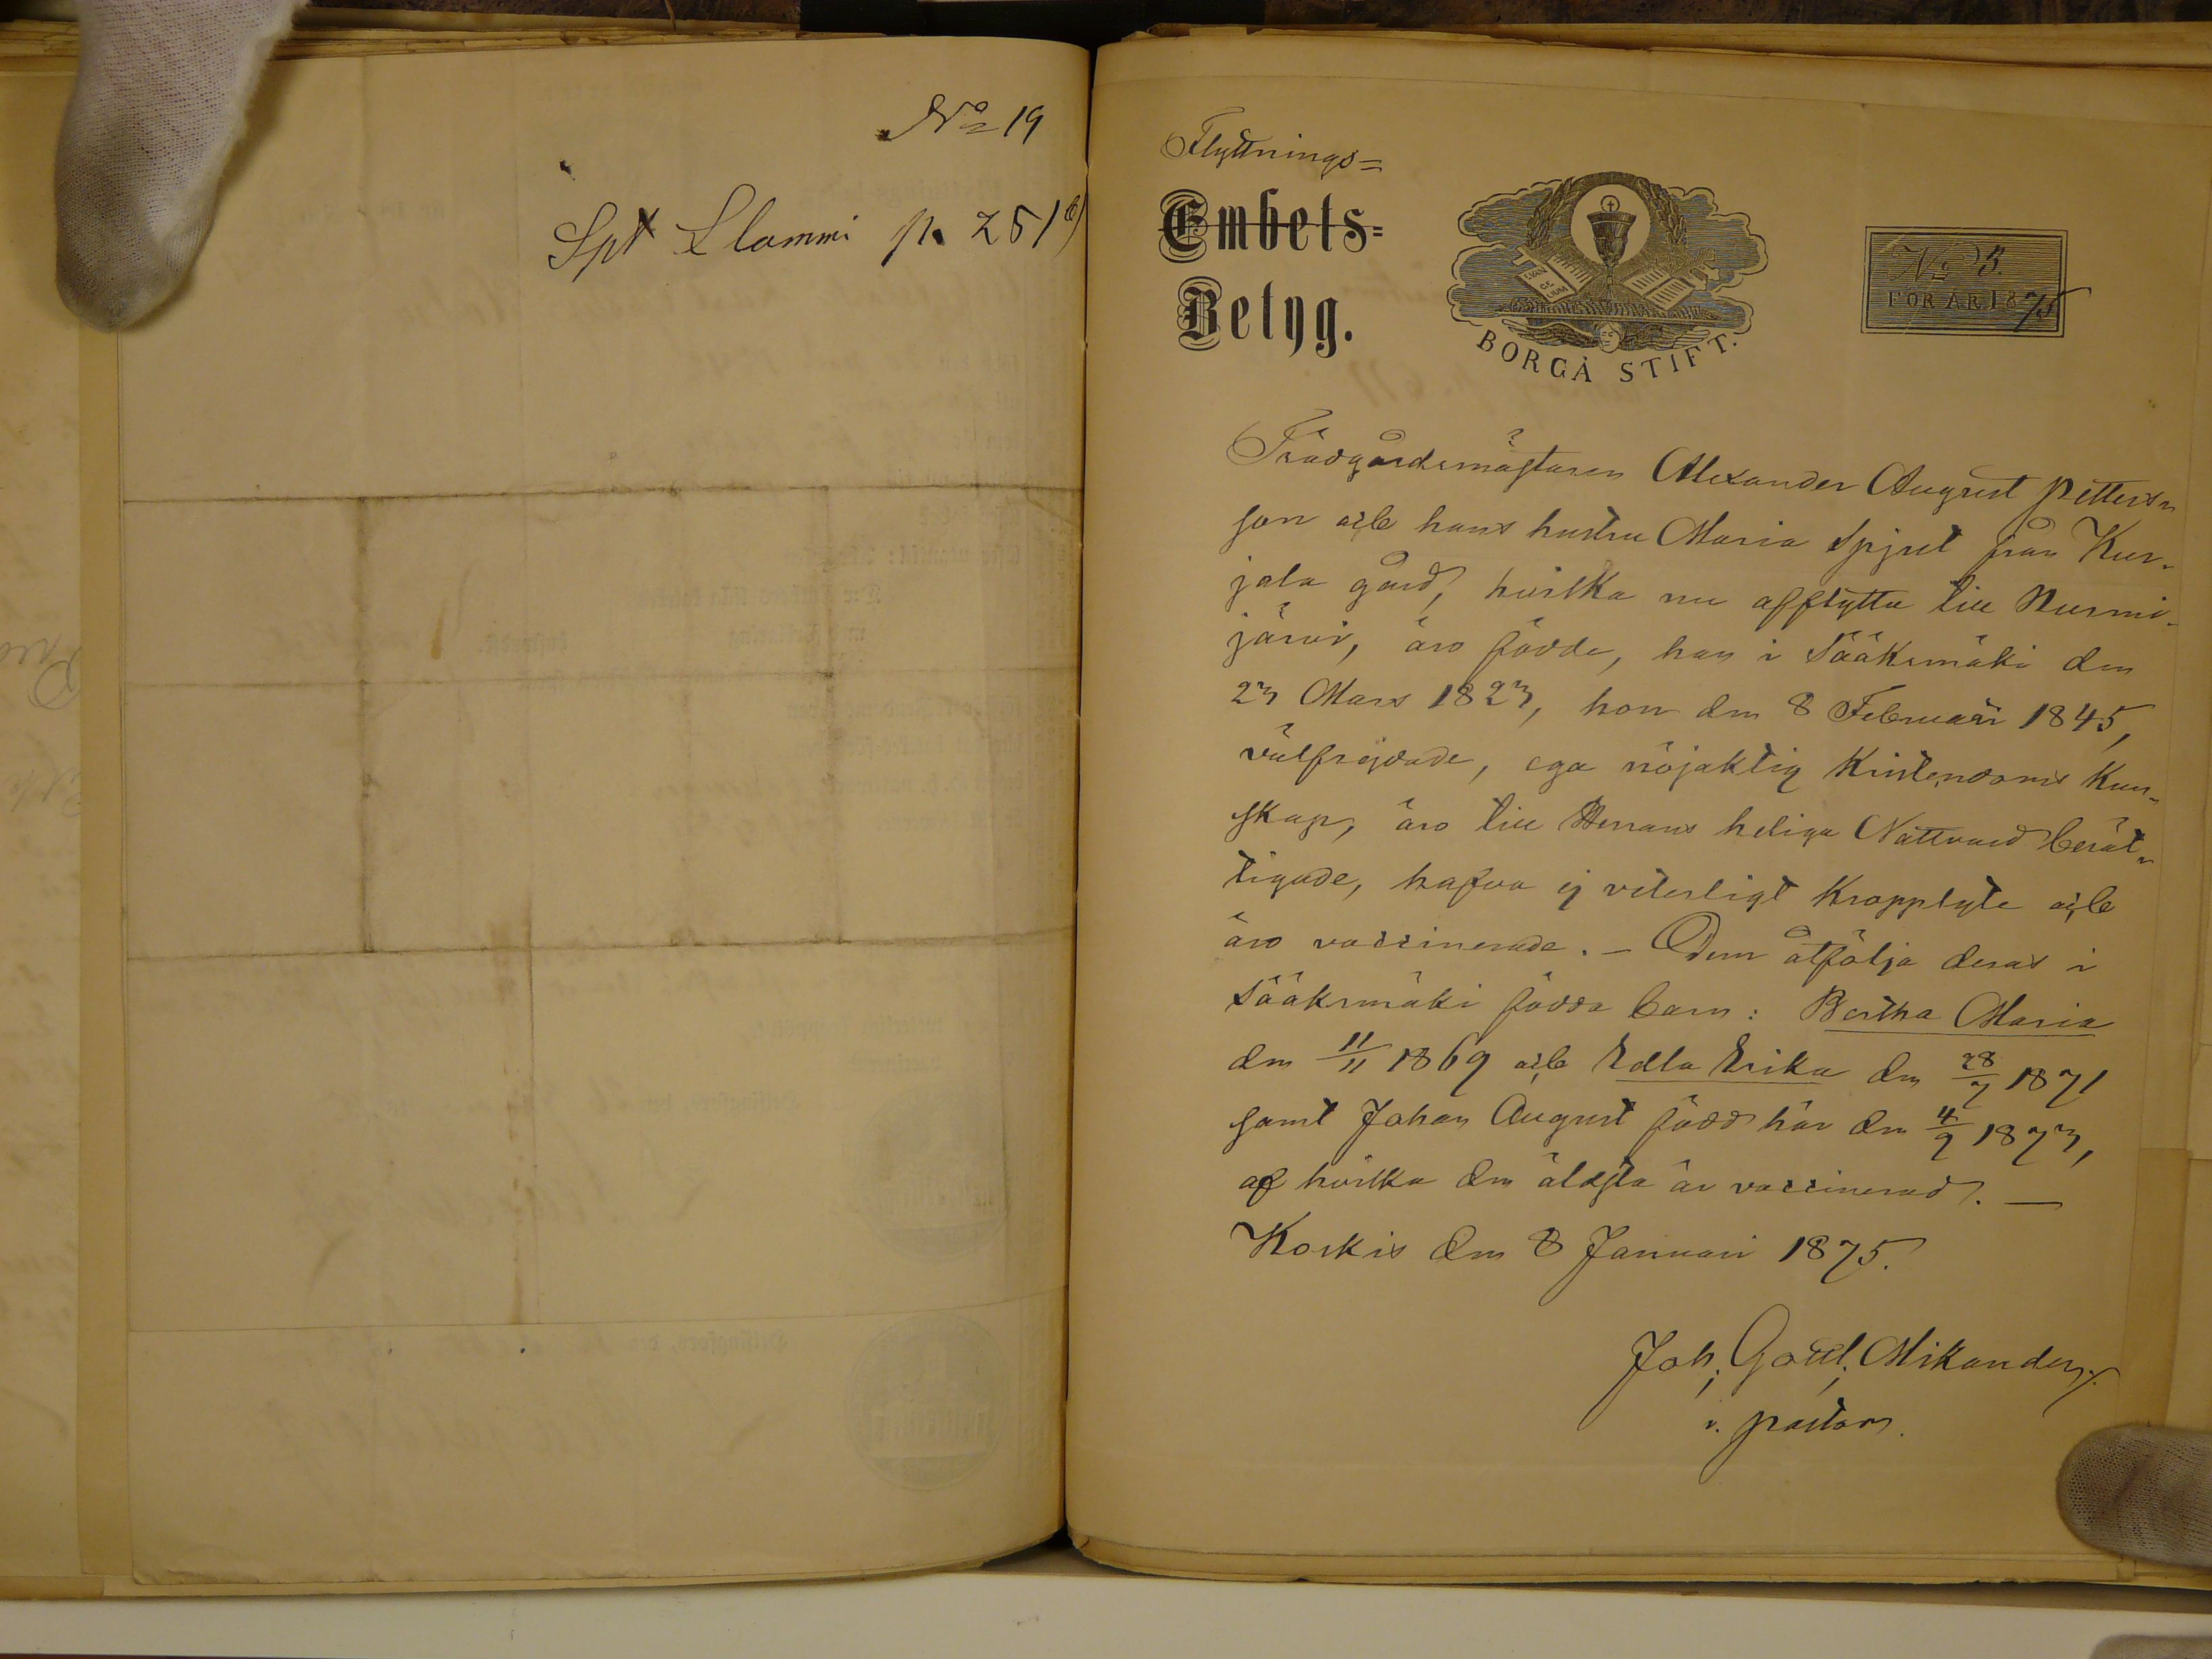 No 19
Spt Llammi p. 251 b)
Flyttnings=
Embets=
Betyg.
EVAN
GE
LIUM
BORGÅ STIFT.
No 3.
FÖR ÅR 1875
Trädgårdsmästaren Alexander August Petters-
son och hans hustru Maria Spjut från Kur-
jala gård, hvilka nu afflytta till Nurmi-
järvi, äro födde, han i Sääksmäki den
23 Mars 1823, hon den 8 Februari 1845,
välfrejdade, ega nöjaktig Kristendoms Kun-
skap, äro till Herrans heliga Nattvard berät-
tigade, hafva ej veterligt Kropplyte och
äro vaccinerade. - Dem åtfölja deras i
Sääksmäki födda barn: Bertha Maria
den 11/11 1869 och Edla Erika den 28/7 1871
samt Johan August född här den 4/9 1873,
af hvilka den äldsta är vaccinerad. -
Koskis den 8 Januari 1875.
Joh. Gottl. Mikander
v. pastor.